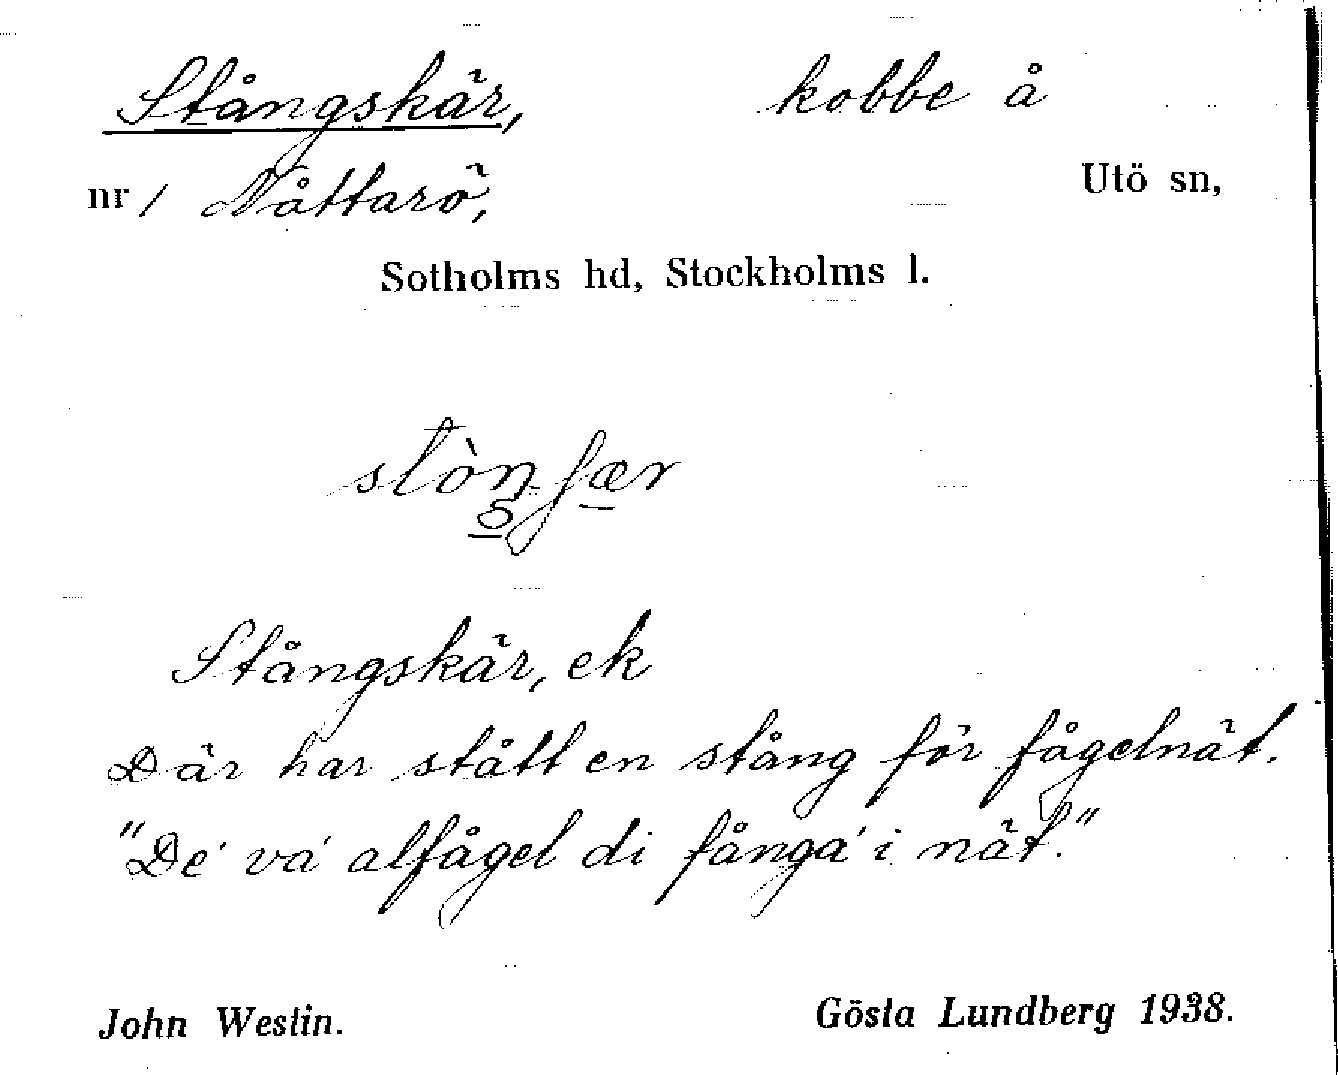 Stångskär, kobbe å
nr 1 Nåttarö, Utö sn,
Sotholms hd, Stockholms l.
Stångskär, ek
Där har stått en stång för fågelnät.
"De' va' alfågel di fånga' i nät."
John Westin. Gösta Lundberg 1938.